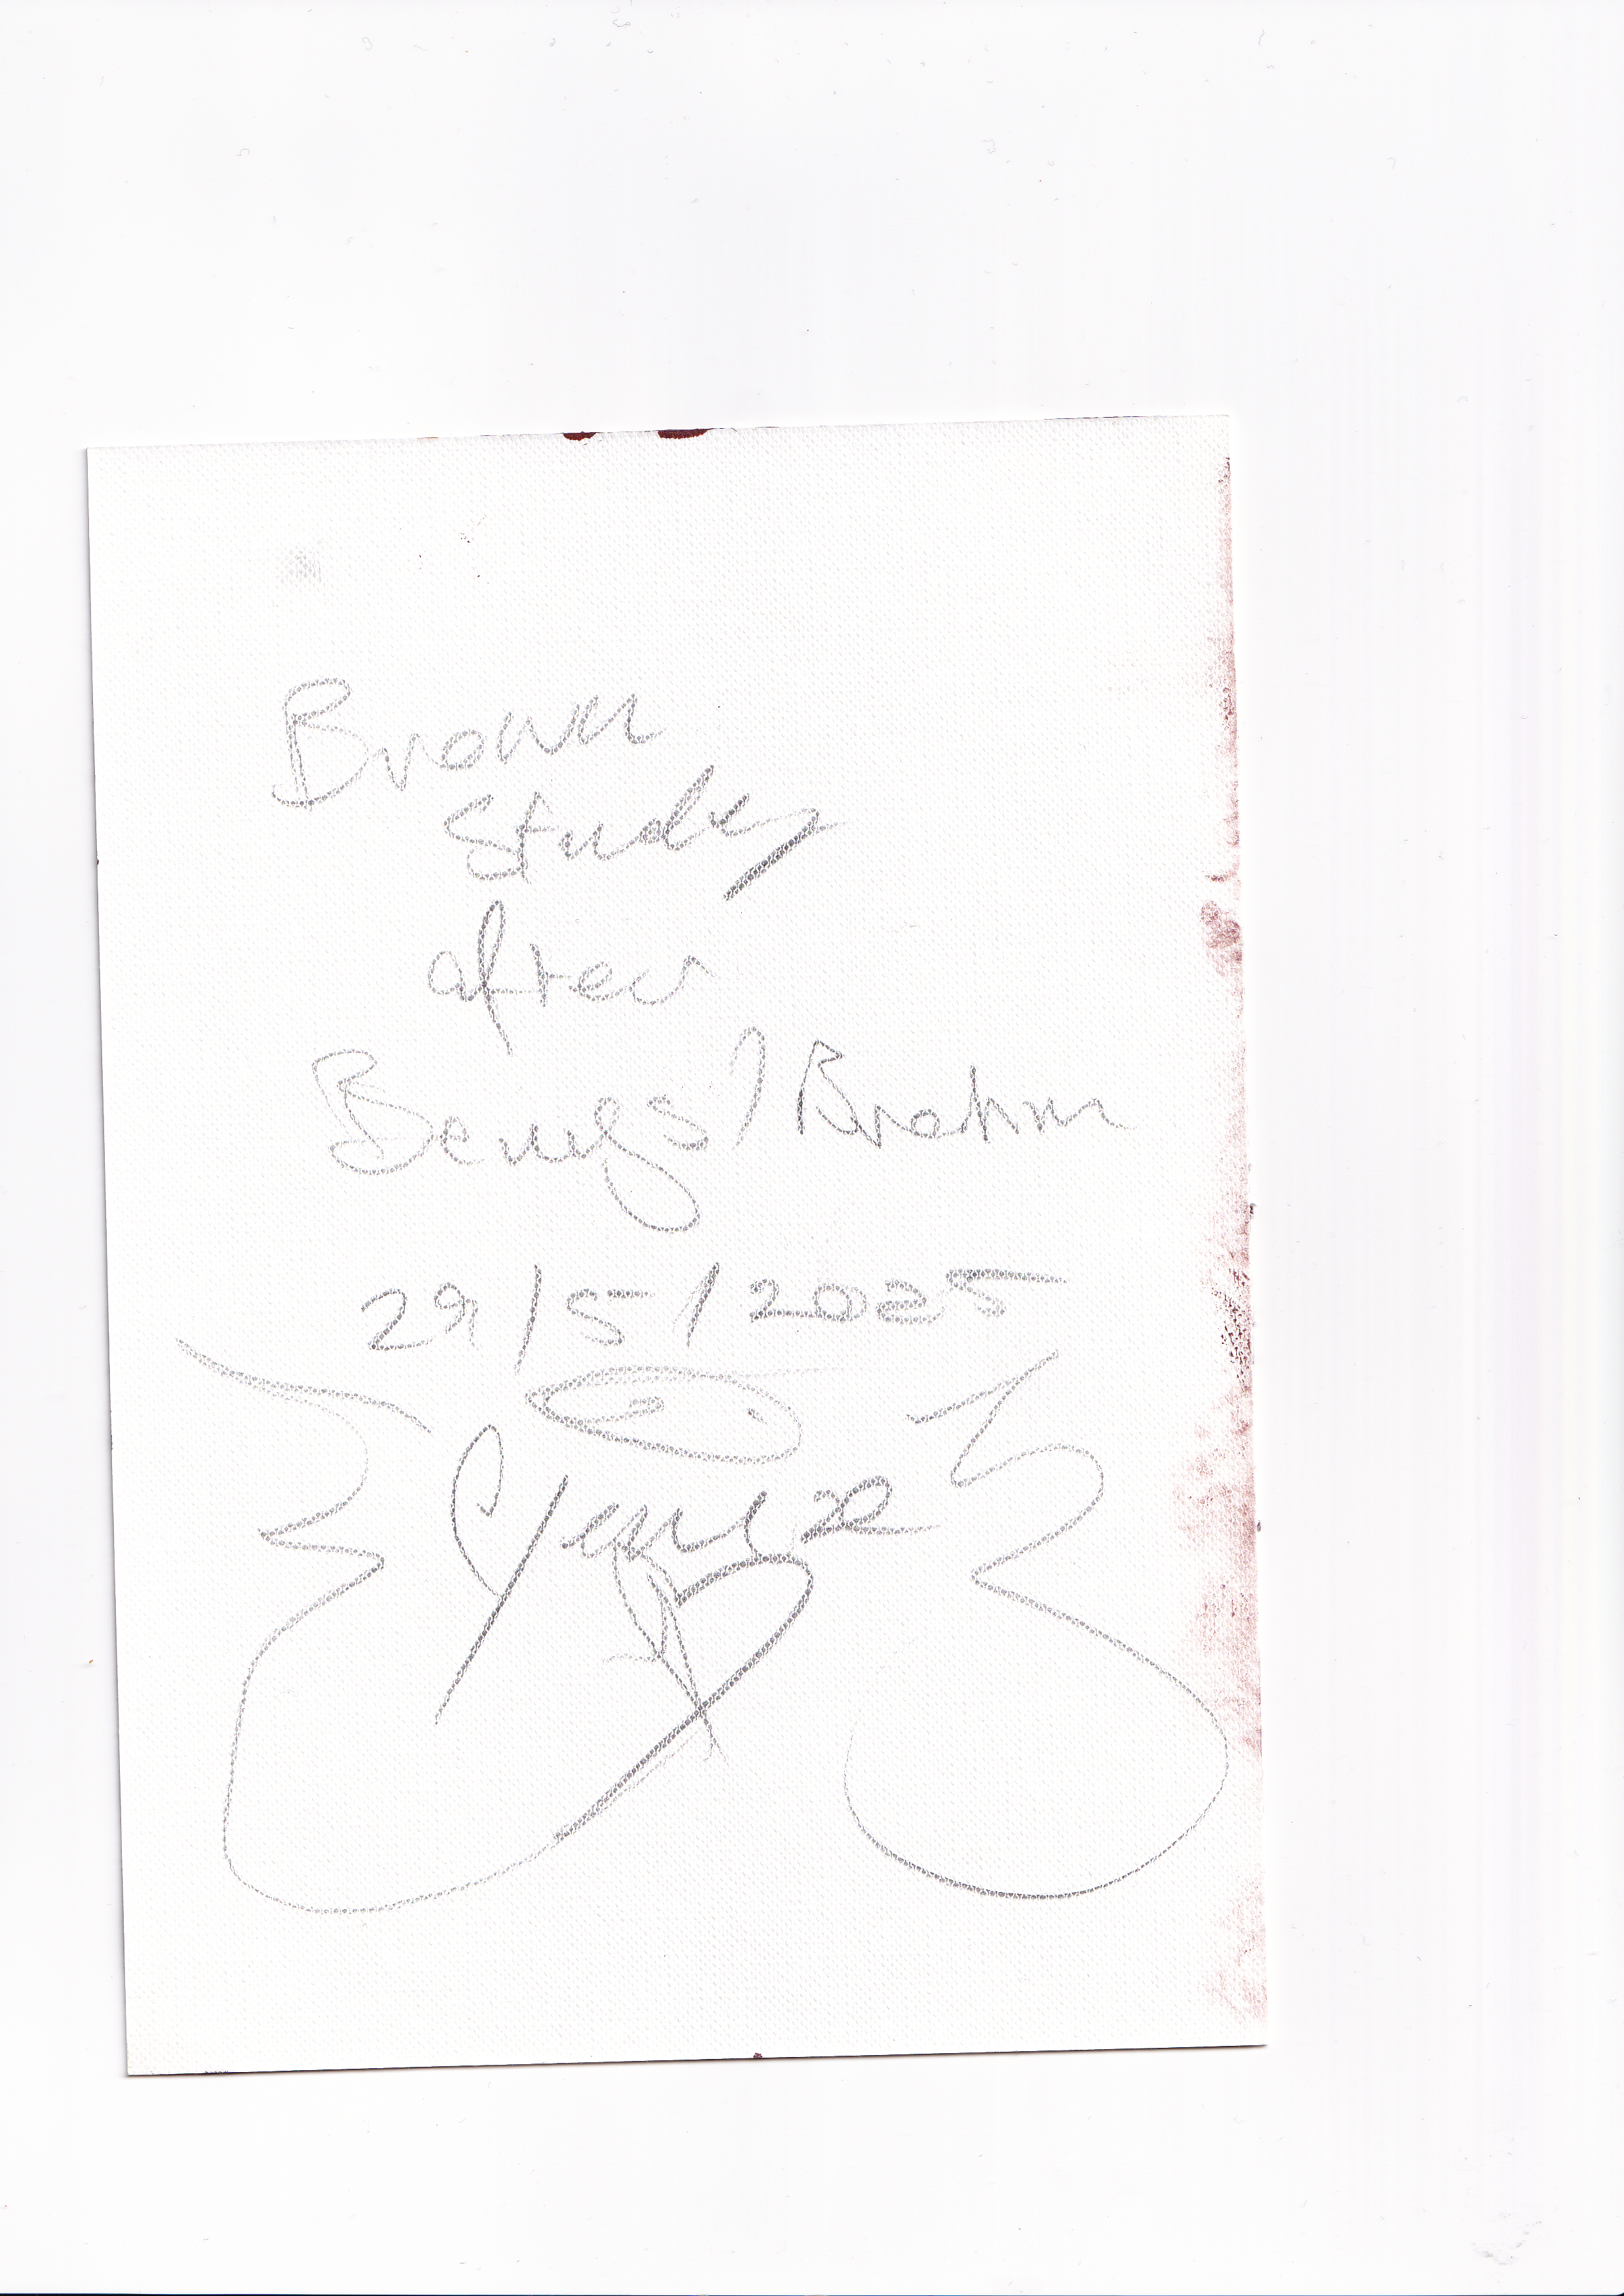 Brown
study
after
Beuys / Brahm
29/5/2025